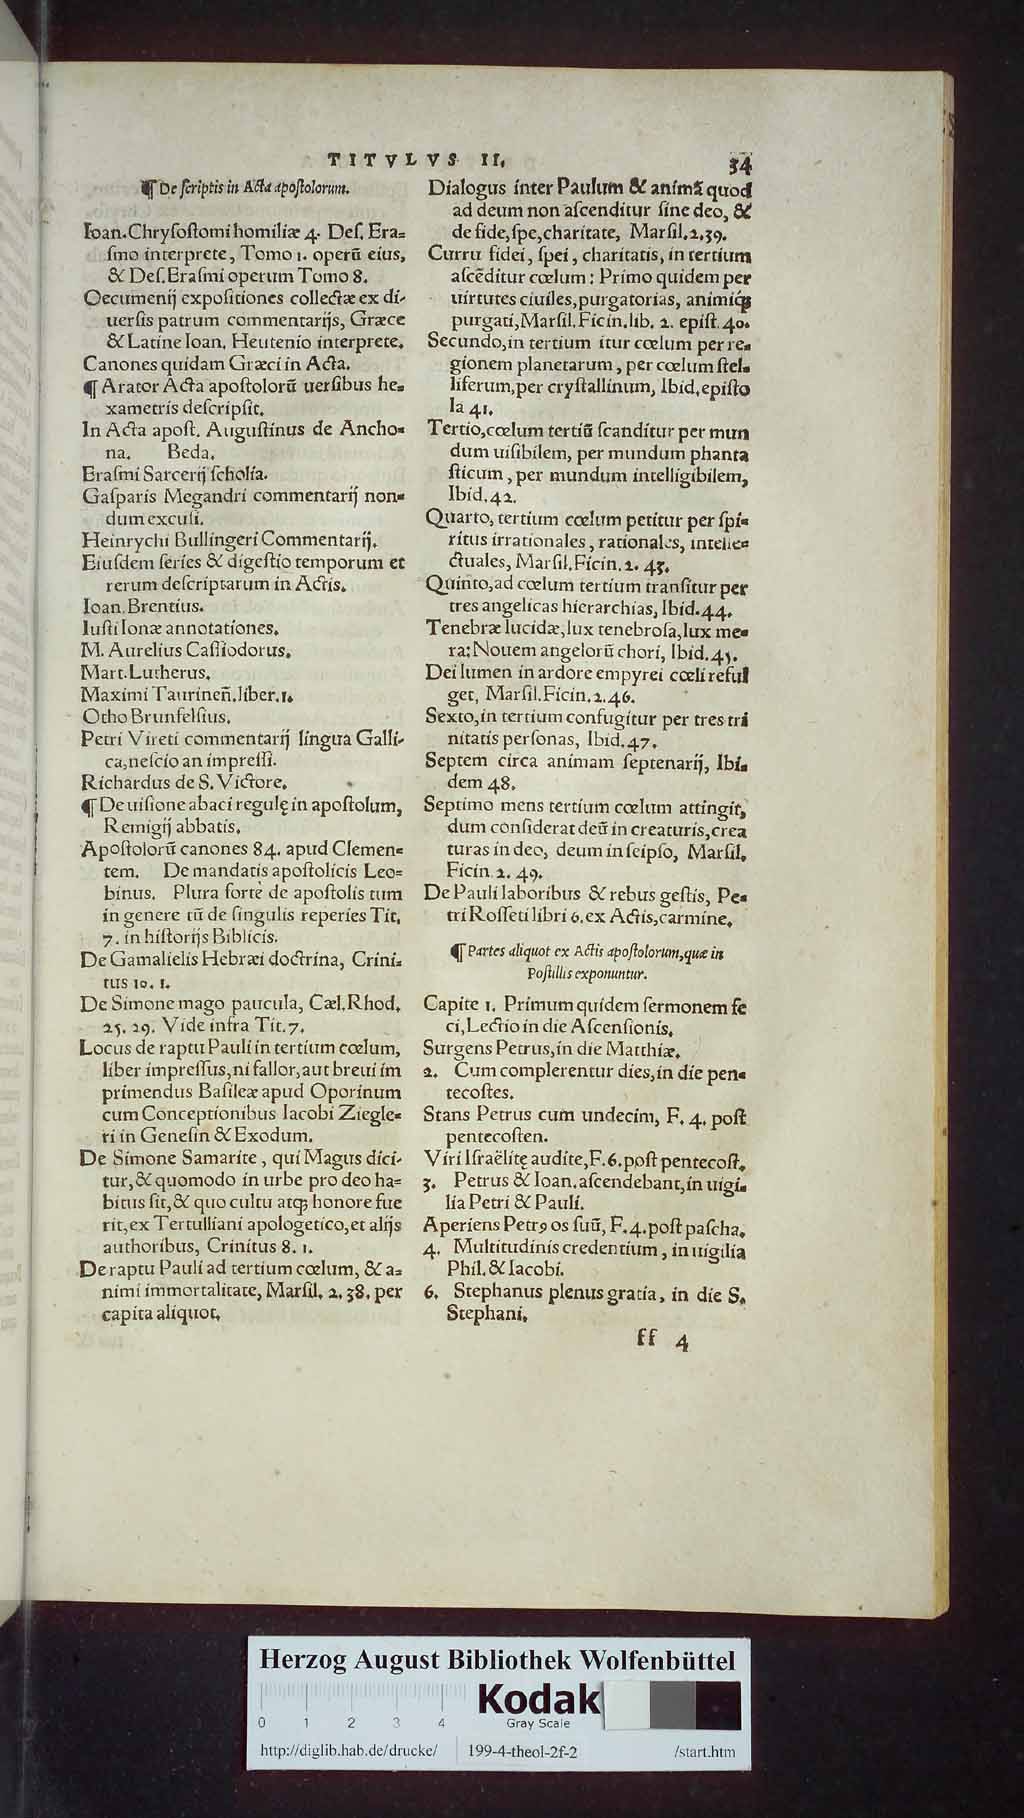 TITVLVS II.
34
¶ De ſcriptis in Acta apoſtolorum.
Ioan. Chryſoſtomi homiliæ 4. Deſ. Era=
ſmo interprete, Tomo 1. operũ eius,
& Deſ. Eraſmi operum Tomo 8.
Oecumenij expoſitiones collectæ ex di-
uerſis patrum commentarijs, Græce
& Latine Ioan. Heutenio interprete.
Canones quidam Græci in Acta.
¶ Arator Acta apoſtolorũ uerſibus he=
xametris deſcripſit.
In Acta apoſt. Auguſtinus de Ancho=
na. Beda.
Eraſmi Sarcerij ſcholia.
Gaſparis Megandri commentarij non=
dum excuſi.
Heinrychi Bullingeri Commentarij.
Eiuſdem ſeries & digeſtio temporum et
rerum deſcriptarum in Actis.
Ioan. Brentius.
Iuſti Ionæ annotationes.
M. Aurelius Caſſiodorus.
Mart. Lutherus.
Maximi Taurineñ. liber. 1.
Otho Brunfelſius.
Petri Vireti commentarij lingua Galli-
ca, neſcio an impreſſi.
Richardus de S. Victore.
¶ De uiſione abaci regulę in apoſtolum,
Remigij abbatis.
Apoſtolorũ canones 84. apud Clemen=
tem. De mandatis apoſtolicis Leo=
binus. Plura fortè de apoſtolis tum
in genere tũ de ſingulis reperies Tit.
7. in hiſtorijs Biblicis.
De Gamalielis Hebræi doctrina, Crini=
tus 10. 1.
De Simone mago paucula, Cæl. Rhod.
25. 29. Vide infra Tit. 7.
Locus de raptu Pauli in tertium cœlum,
liber impreſſus, ni fallor, aut breui im
primendus Baſileæ apud Oporinum
cum Conceptionibus Iacobi Ziegle=
ri in Geneſin & Exodum.
De Simone Samarite, qui Magus dici-
tur, & quomodo in urbe pro deo ha=
bitus ſit, & quo cultu atq; honore fue
rit, ex Tertulliani apologetico, et alijs
authoribus, Crinitus 8. 1.
De raptu Pauli ad tertium cœlum, & a=
nimi immortalitate, Marſil. 2. 38. per
capita aliquot.
Dialogus inter Paulum & animã quod
ad deum non aſcenditur ſine deo, &
de fide, ſpe, charitate, Marſil. 2. 39.
Curru fidei, ſpei, charitatis, in tertium
aſcẽditur cœlum: Primo quidem per
uirtutes ciuiles, purgatorias, animiq́;
purgati, Marſil. Ficin. lib. 2. epiſt. 40.
Secundo, in tertium itur cœlum per re=
gionem planetarum, per cœlum ſtel=
liferum, per cryſtallinum, Ibid. epiſto
la 41.
Tertio, cœlum tertiũ ſcanditur per mun
dum uiſibilem, per mundum phanta
ſticum, per mundum intelligibilem,
Ibid. 42.
Quarto, tertium cœlum petitur per ſpi=
ritus irrationales, rationales, intelle=
ctuales, Marſil. Ficin. 2. 43.
Quinto, ad cœlum tertium tranſitur per
tres angelicas hierarchias, Ibid. 44.
Tenebræ lucidæ, lux tenebroſa, lux me=
ra: Nouem angelorũ chori, Ibid. 45.
Dei lumen in ardore empyrei cœli reful
get, Marſil. Ficin. 2. 46.
Sexto, in tertium confugitur per tres tri
nitatis perſonas, Ibid. 47.
Septem circa animam ſeptenarij, Ibi=
dem 48.
Septimo mens tertium cœlum attingit,
dum conſiderat deũ in creaturis, crea
turas in deo, deum in ſeipſo, Marſil.
Ficin. 2. 49.
De Pauli laboribus & rebus geſtis, Pe=
tri Roſſeti libri 6. ex Actis, carmine.
¶ Partes aliquot ex Actis apoſtolorum, quæ in
Poſtillis exponuntur.
Capite 1. Primum quidem ſermonem fe
ci, Lectio in die Aſcenſionis.
Surgens Petrus, in die Matthiæ.
2. Cum complerentur dies, in die pen=
tecoſtes.
Stans Petrus cum undecim, F. 4. poſt
pentecoſten.
Viri Iſraëlitę audite, F. 6. poſt pentecoſt.
3. Petrus & Ioan. aſcendebant, in uigi=
lia Petri & Pauli.
Aperiens Petrꝰ os ſuũ, F. 4. poſt paſcha.
4. Multitudinis credentium, in uigilia
Phil. & Iacobi.
6. Stephanus plenus gratia, in die S.
Stephani.
ff 4
Herzog August Bibliothek Wolfenbüttel
Kodak
Gray Scale
0 1 2 3 4
http://diglib.hab.de/drucke/ 199-4-theol-2f-2 /start.htm